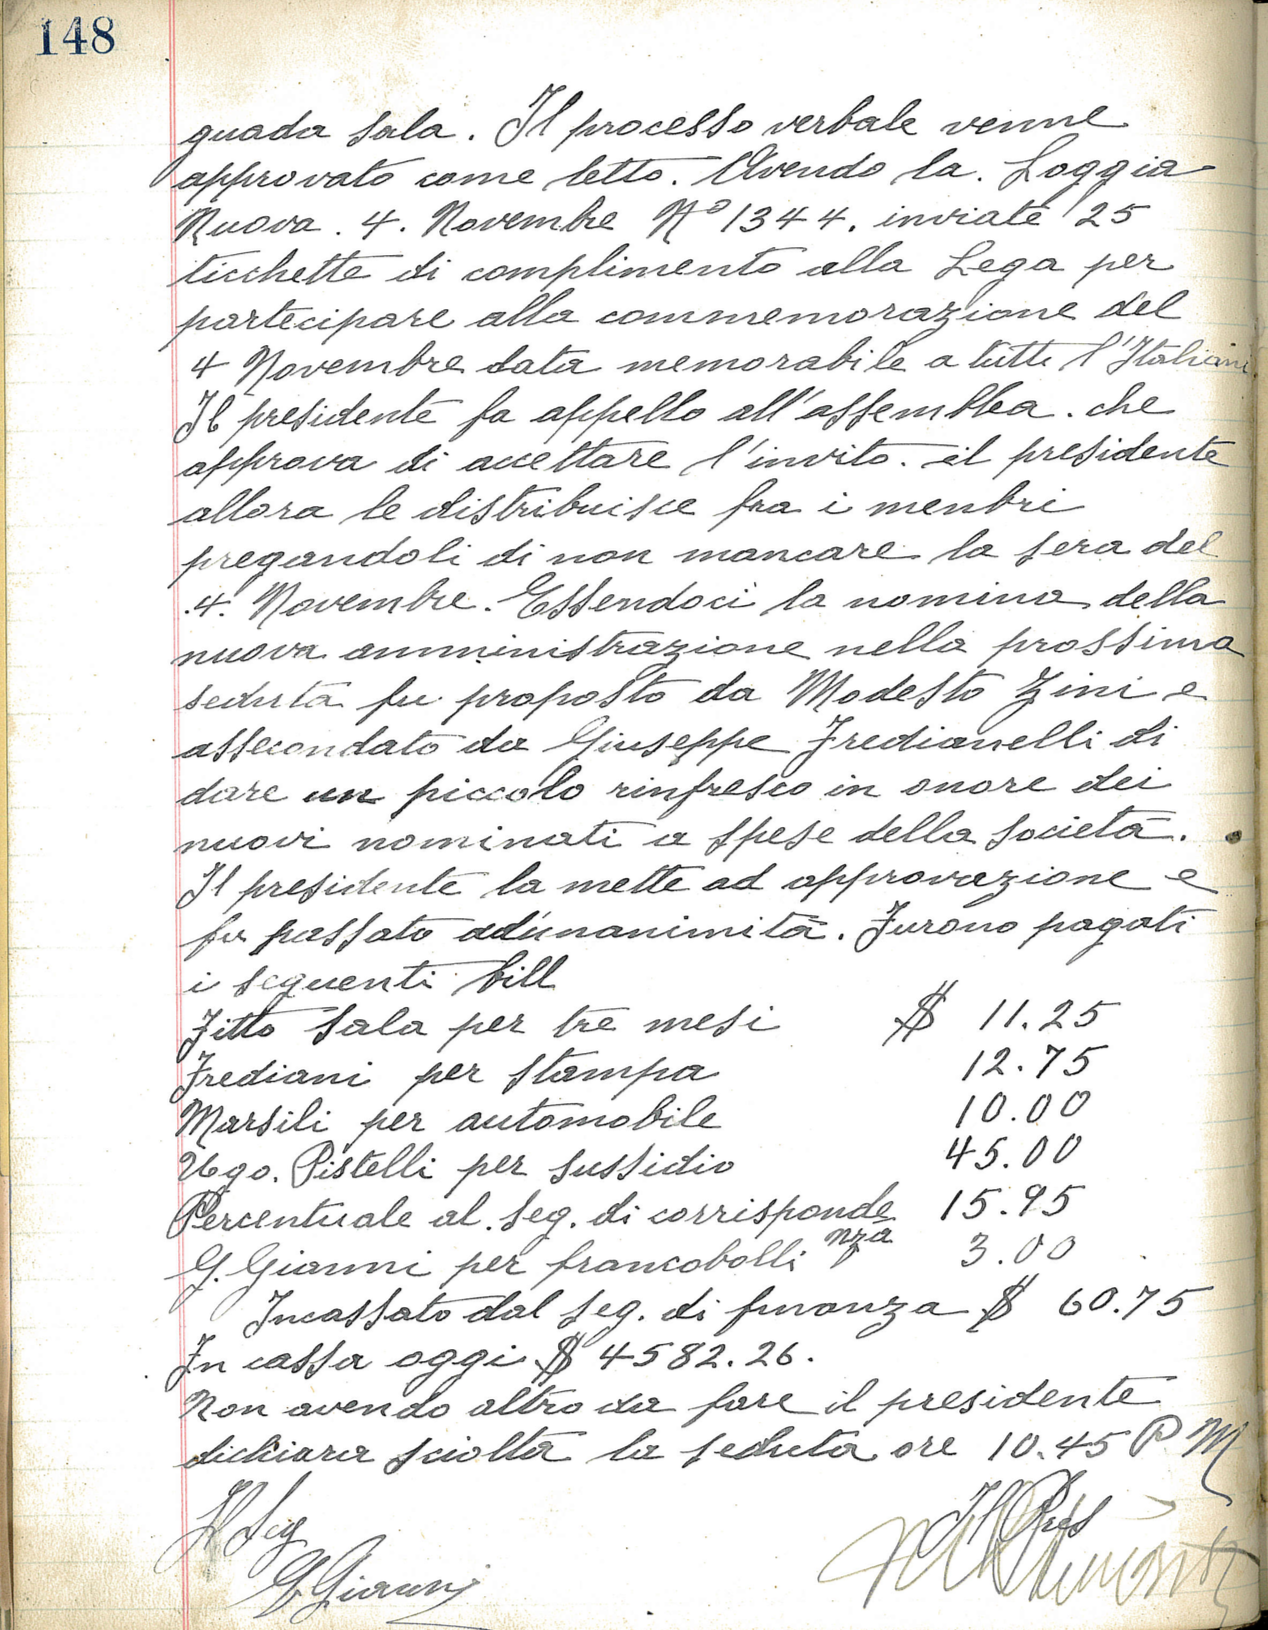 148
guada sala. Il processo verbale venne
approvato come letto. Avendo la. Loggia
Nuova. 4. Novembre Nº 1344. inviate 25
ticchette di complimento alla Lega per
partecipare alla commemorazione del
4 Novembre data memorabile a tutti l'Italiani.
Il presidente fa appello all'assemblea. che
approva di accettare l'invito. il presidente
allora le distribuisce fra i menbri
pregandoli di non mancare la sera del
.4. Novembre. Essendoci la nomina della
nuova amministrazione nella prossima
seduta fu proposto da Modesto Zini e
assecondato da Giuseppe Fredianelli di
dare un piccolo rinfresco in onore dei
nuovi nominati a spese della società.
Il presidente la mette ad approvazione e
fu passato adunanimità. Furono pagati
i seguenti bill
Fitto sala per tre mesi $ 11.25
Frediani per stampa 12.75
Marsili per automobile 10.00
Ugo. Pistelli per sussidio 45.00
Percentuale al. seg. di corrisponde 15.95
nza
G. Gianni per francobolli 3.00
Incassato dal seg. di finanza $ 60.75
In cassa oggi $ 4582.26.
Non avendo altro da fare il presidente
dichiara sciolta la seduta ore 10.45 P M
Il Seg Il Pres
G Gianni